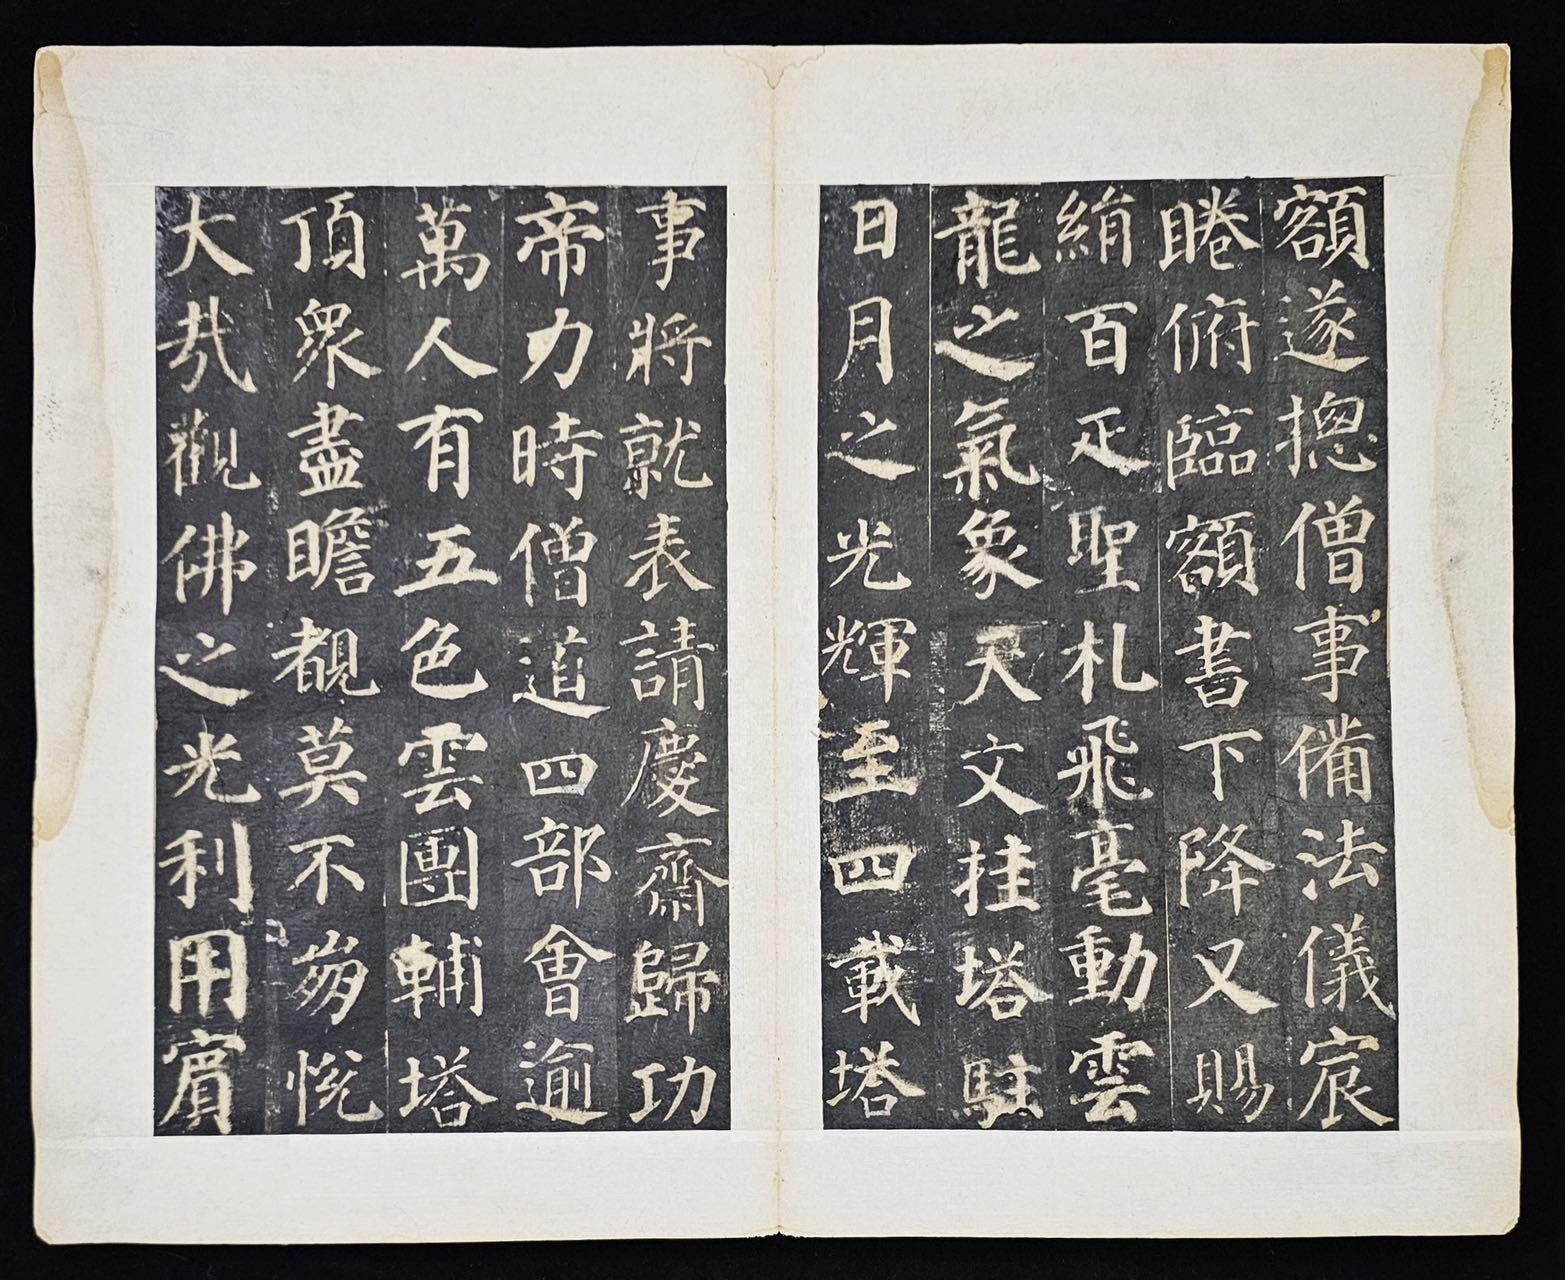 額遂摠僧事備法儀宸
睠俯臨額書下降又賜
絹百疋聖札飛毫動雲
龍之氣象天文挂塔駐
日月之光輝至四載塔
事將就表請慶齋歸功
帝力時僧道四部會逾
萬人有五色雲團輔塔
頂衆盡瞻覩莫不崩悅
大哉觀佛之光利用賓